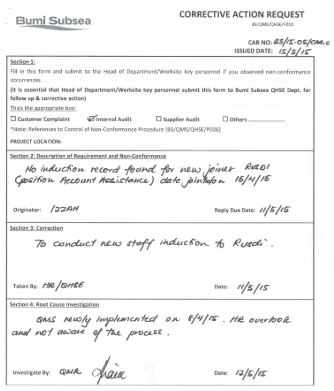 Bumi Subsea
CORRECTIVE ACTION REQUEST
BS/QMS/QHSE/F010
CAR NO: BS/15-05/CAR-0
ISSUED DATE: 15/5/15
Section 1:
Fill in this form and submit to the Head of Department/Worksite key personnel if you observed non-conformance
occurrences.
(It is essential that Head of Department/Worksite key personnel submit this form to Bumi Subsea QHSE Dept. for
follow up & corrective action)
Thick the appropriate box:
Customer Complaint Internal Audit Supplier Audit Others ..................
*Note: References to Control of Non-Conformance Procedure [BS/QMS/QHSE/P006]
PROJECT LOCATION:
Section 2: Description of Requirement and Non-Conformance
No induction record found for new joiner Rusdi
(position Account Assistance) date joint on 15/4/15
Originator: IZZAH Reply Due Date: 11/5/15
Section 3: Correction
To conduct new staff induction to Rusdi.
Taken By: HR/QHSE Date: 11/5/15
Section 4: Root Cause Investigation
QMS newly implemented on 8/4/15. HR overlook
and not aware of the process.
Investigate By: QMR Date: 12/5/15